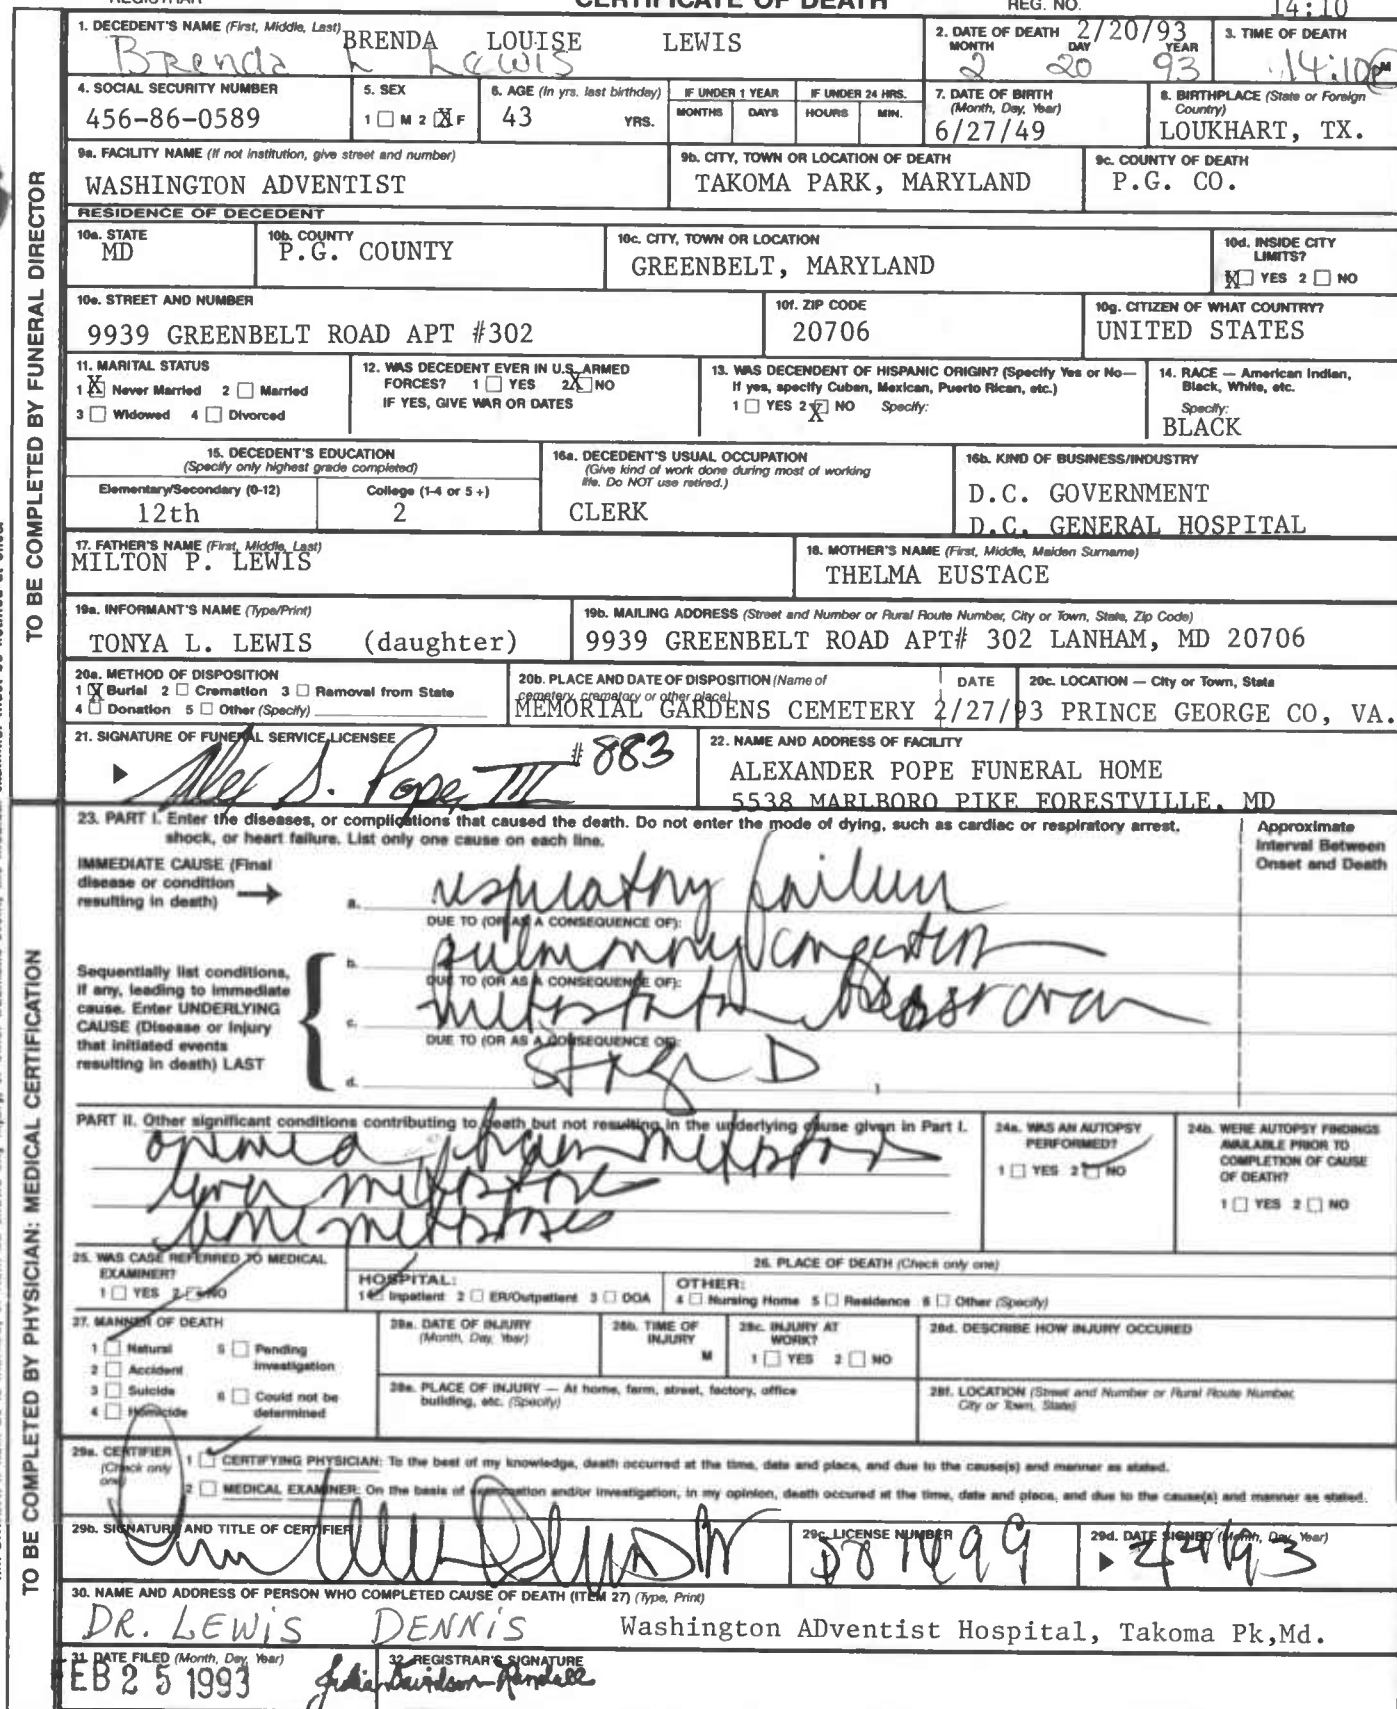 REGISTRAR CERTIFICATE OF DEATH REG. NO. 14:10
1. DECEDENT'S NAME (First, Middle, Last) BRENDA LOUISE LEWIS
Brenda L Lewis
2. DATE OF DEATH 2/20/93
MONTH DAY YEAR
2 20 93
3. TIME OF DEATH
14:10 PM
4. SOCIAL SECURITY NUMBER
456-86-0589
5. SEX
1 ☐ M 2 ☒ F
6. AGE (In yrs. last birthday)
43 YRS.
IF UNDER 1 YEAR
MONTHS DAYS
IF UNDER 24 HRS.
HOURS MIN.
7. DATE OF BIRTH
(Month, Day, Year)
6/27/49
8. BIRTHPLACE (State or Foreign
Country)
LOUKHART, TX.
9a. FACILITY NAME (If not institution, give street and number)
WASHINGTON ADVENTIST
9b. CITY, TOWN OR LOCATION OF DEATH
TAKOMA PARK, MARYLAND
9c. COUNTY OF DEATH
P.G. CO.
RESIDENCE OF DECEDENT
10a. STATE
MD
10b. COUNTY
P.G. COUNTY
10c. CITY, TOWN OR LOCATION
GREENBELT, MARYLAND
10d. INSIDE CITY
LIMITS?
☒ YES 2 ☐ NO
10e. STREET AND NUMBER
9939 GREENBELT ROAD APT #302
10f. ZIP CODE
20706
10g. CITIZEN OF WHAT COUNTRY?
UNITED STATES
11. MARITAL STATUS
1 ☒ Never Married 2 ☐ Married
3 ☐ Widowed 4 ☐ Divorced
12. WAS DECEDENT EVER IN U.S. ARMED
FORCES? 1 ☐ YES 2 ☒ NO
IF YES, GIVE WAR OR DATES
13. WAS DECENDENT OF HISPANIC ORIGIN? (Specify Yes or No—
If yes, specify Cuban, Mexican, Puerto Rican, etc.)
1 ☐ YES 2 ☒ NO Specify:
14. RACE — American Indian,
Black, White, etc.
Specify:
BLACK
15. DECEDENT'S EDUCATION
(Specify only highest grade completed)
Elementary/Secondary (0-12) College (1-4 or 5+)
12th 2
16a. DECEDENT'S USUAL OCCUPATION
(Give kind of work done during most of working
life. Do NOT use retired.)
CLERK
16b. KIND OF BUSINESS/INDUSTRY
D.C. GOVERNMENT
D.C. GENERAL HOSPITAL
17. FATHER'S NAME (First, Middle, Last)
MILTON P. LEWIS
18. MOTHER'S NAME (First, Middle, Maiden Surname)
THELMA EUSTACE
19a. INFORMANT'S NAME (Type/Print)
TONYA L. LEWIS (daughter)
19b. MAILING ADDRESS (Street and Number or Rural Route Number, City or Town, State, Zip Code)
9939 GREENBELT ROAD APT# 302 LANHAM, MD 20706
20a. METHOD OF DISPOSITION
1 ☒ Burial 2 ☐ Cremation 3 ☐ Removal from State
4 ☐ Donation 5 ☐ Other (Specify)
20b. PLACE AND DATE OF DISPOSITION (Name of
cemetery, crematory or other place)
MEMORIAL GARDENS CEMETERY
DATE
2/27/93
20c. LOCATION — City or Town, State
PRINCE GEORGE CO, VA.
21. SIGNATURE OF FUNERAL SERVICE LICENSEE
Alex S. Pope III #883
22. NAME AND ADDRESS OF FACILITY
ALEXANDER POPE FUNERAL HOME
5538 MARLBORO PIKE FORESTVILLE, MD
TO BE COMPLETED BY FUNERAL DIRECTOR
23. PART I. Enter the diseases, or complications that caused the death. Do not enter the mode of dying, such as cardiac or respiratory arrest,
shock, or heart failure. List only one cause on each line.
Approximate
Interval Between
Onset and Death
IMMEDIATE CAUSE (Final
disease or condition
resulting in death)
a. respiratory failure
DUE TO (OR AS A CONSEQUENCE OF):
b. pulmonary congestion
DUE TO (OR AS A CONSEQUENCE OF):
c. metastatic
DUE TO (OR AS A CONSEQUENCE OF):
d. Stage D
Sequentially list conditions,
if any, leading to immediate
cause. Enter UNDERLYING
CAUSE (Disease or injury
that initiated events
resulting in death) LAST
PART II. Other significant conditions contributing to death but not resulting in the underlying cause given in Part I.
metastases
liver metastases
bone metastases
24a. WAS AN AUTOPSY
PERFORMED?
1 ☐ YES 2 ☑ NO
24b. WERE AUTOPSY FINDINGS
AVAILABLE PRIOR TO
COMPLETION OF CAUSE
OF DEATH?
1 ☐ YES 2 ☐ NO
25. WAS CASE REFERRED TO MEDICAL
EXAMINER?
1 ☐ YES 2 ☑ NO
26. PLACE OF DEATH (Check only one)
HOSPITAL:
1 ☑ Inpatient 2 ☐ ER/Outpatient 3 ☐ DOA
OTHER:
4 ☐ Nursing Home 5 ☐ Residence 6 ☐ Other (Specify)
27. MANNER OF DEATH
1 ☑ Natural 5 ☐ Pending
Investigation
2 ☐ Accident
3 ☐ Suicide 6 ☐ Could not be
determined
4 ☐ Homicide
28a. DATE OF INJURY
(Month, Day, Year)
28b. TIME OF
INJURY
M
28c. INJURY AT
WORK?
1 ☐ YES 2 ☐ NO
28d. DESCRIBE HOW INJURY OCCURED
28e. PLACE OF INJURY — At home, farm, street, factory, office
building, etc. (Specify)
28f. LOCATION (Street and Number or Rural Route Number,
City or Town, State)
29a. CERTIFIER
(Check only
one)
1 ☑ CERTIFYING PHYSICIAN: To the best of my knowledge, death occurred at the time, date and place, and due to the cause(s) and manner as stated.
2 ☐ MEDICAL EXAMINER: On the basis of examination and/or investigation, in my opinion, death occured at the time, date and place, and due to the cause(s) and manner as stated.
29b. SIGNATURE AND TITLE OF CERTIFIER
29c. LICENSE NUMBER
29d. DATE SIGNED (Month, Day, Year)
30. NAME AND ADDRESS OF PERSON WHO COMPLETED CAUSE OF DEATH (ITEM 27) (Type, Print)
DR. LEWIS DENNIS Washington ADventist Hospital, Takoma Pk,Md.
31. DATE FILED (Month, Day, Year)
EB 25 1993
32. REGISTRAR'S SIGNATURE
Julia Davidson-Randall
TO BE COMPLETED BY PHYSICIAN: MEDICAL CERTIFICATION